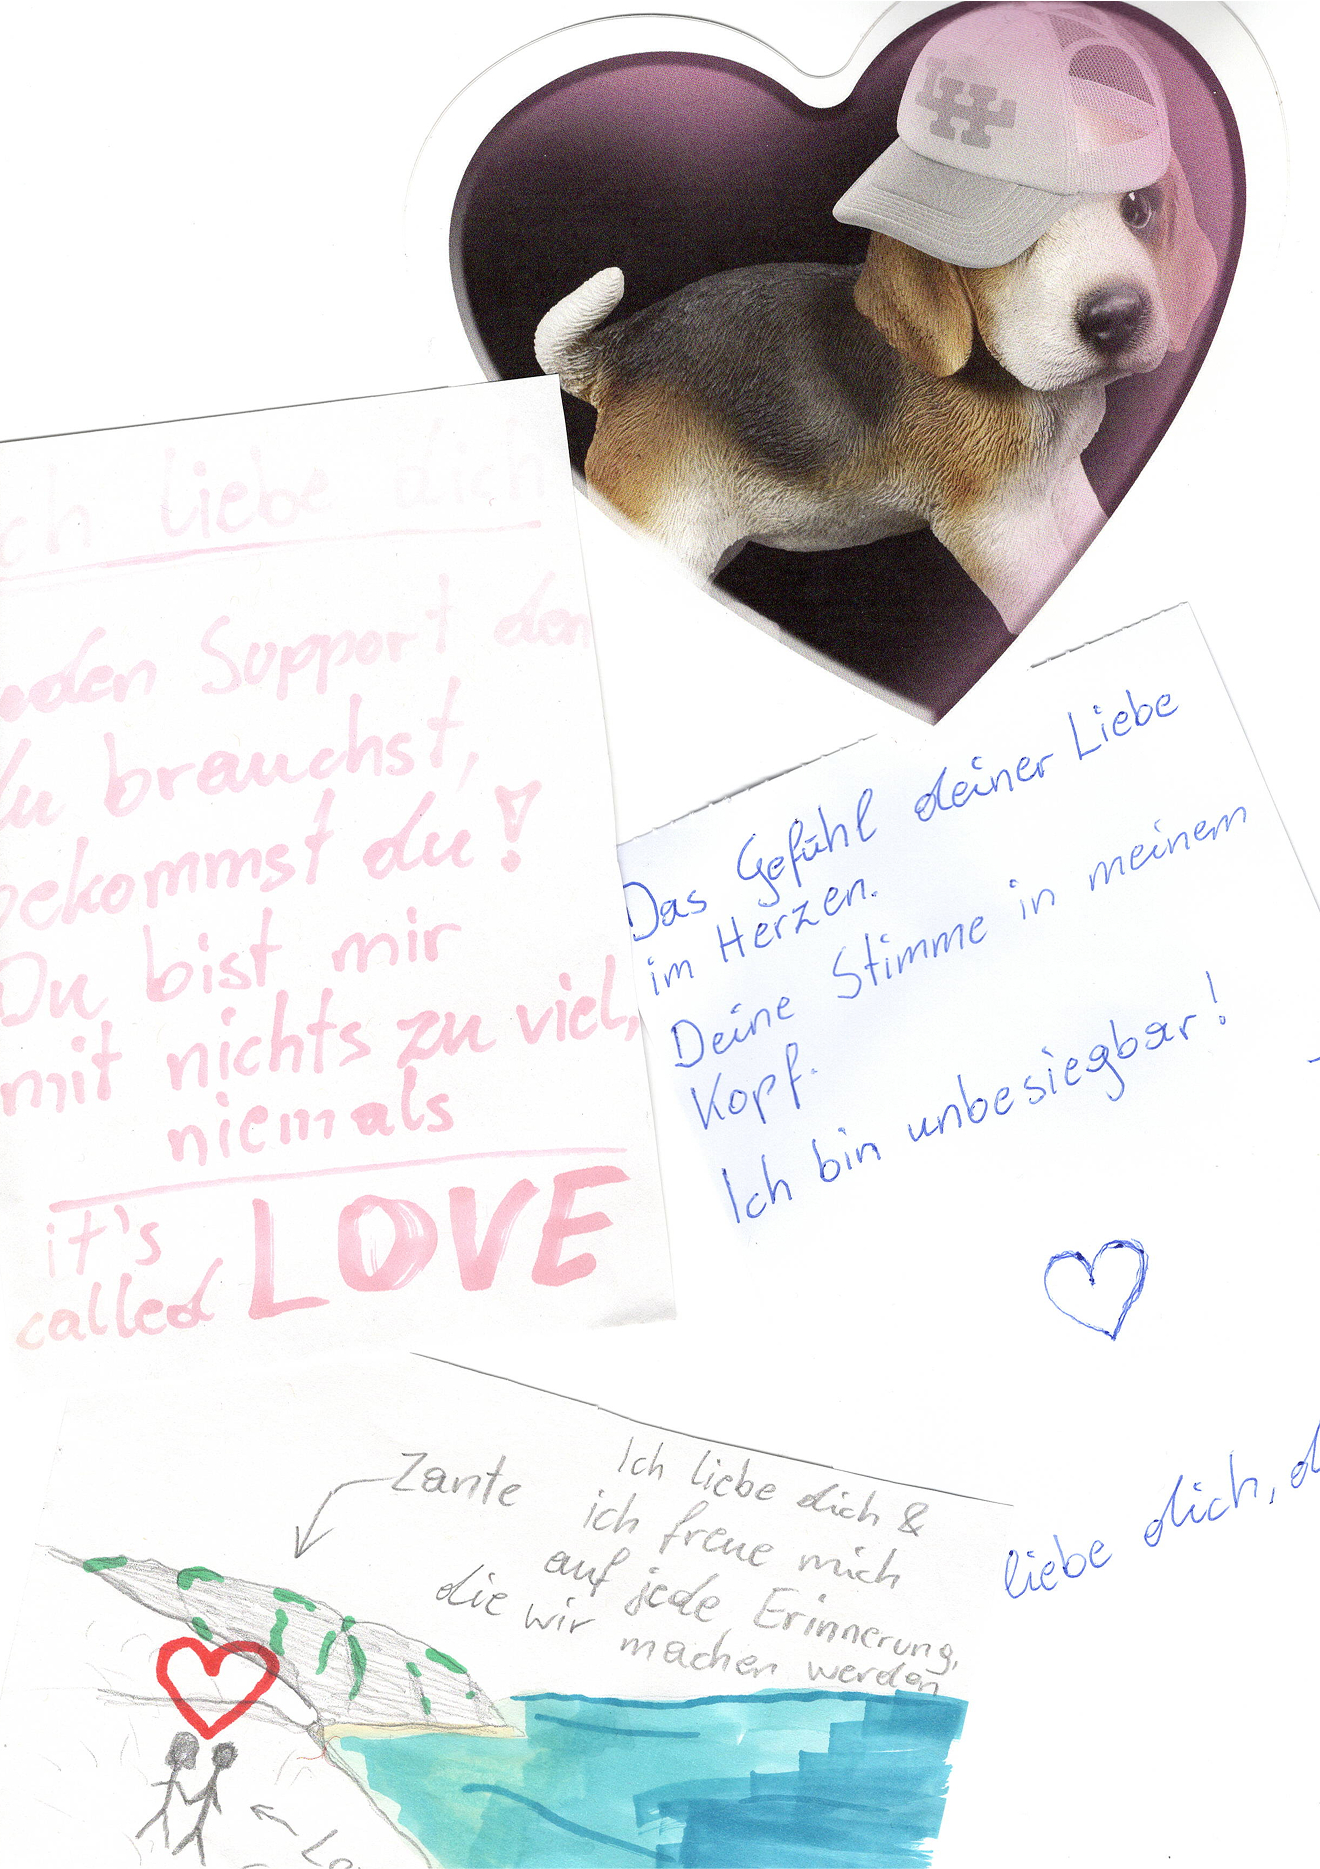 ch liebe dich
den Support den
du brauchst,
bekommst du!
Du bist mir
mit nichts zu viel,
niemals
it's
called LOVE
Das Gefühl deiner Liebe
im Herzen.
Deine Stimme in meinem
Kopf.
Ich bin unbesiegbar!
liebe dich, d
Zante
Ich liebe dich &
ich freue mich
auf jede Erinnerung,
die wir machen werden